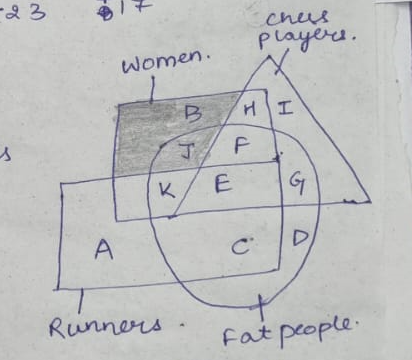 23
17
chess
players.
women.
s
B H I
J F
K E G
A C D
Runners.
Fat people.